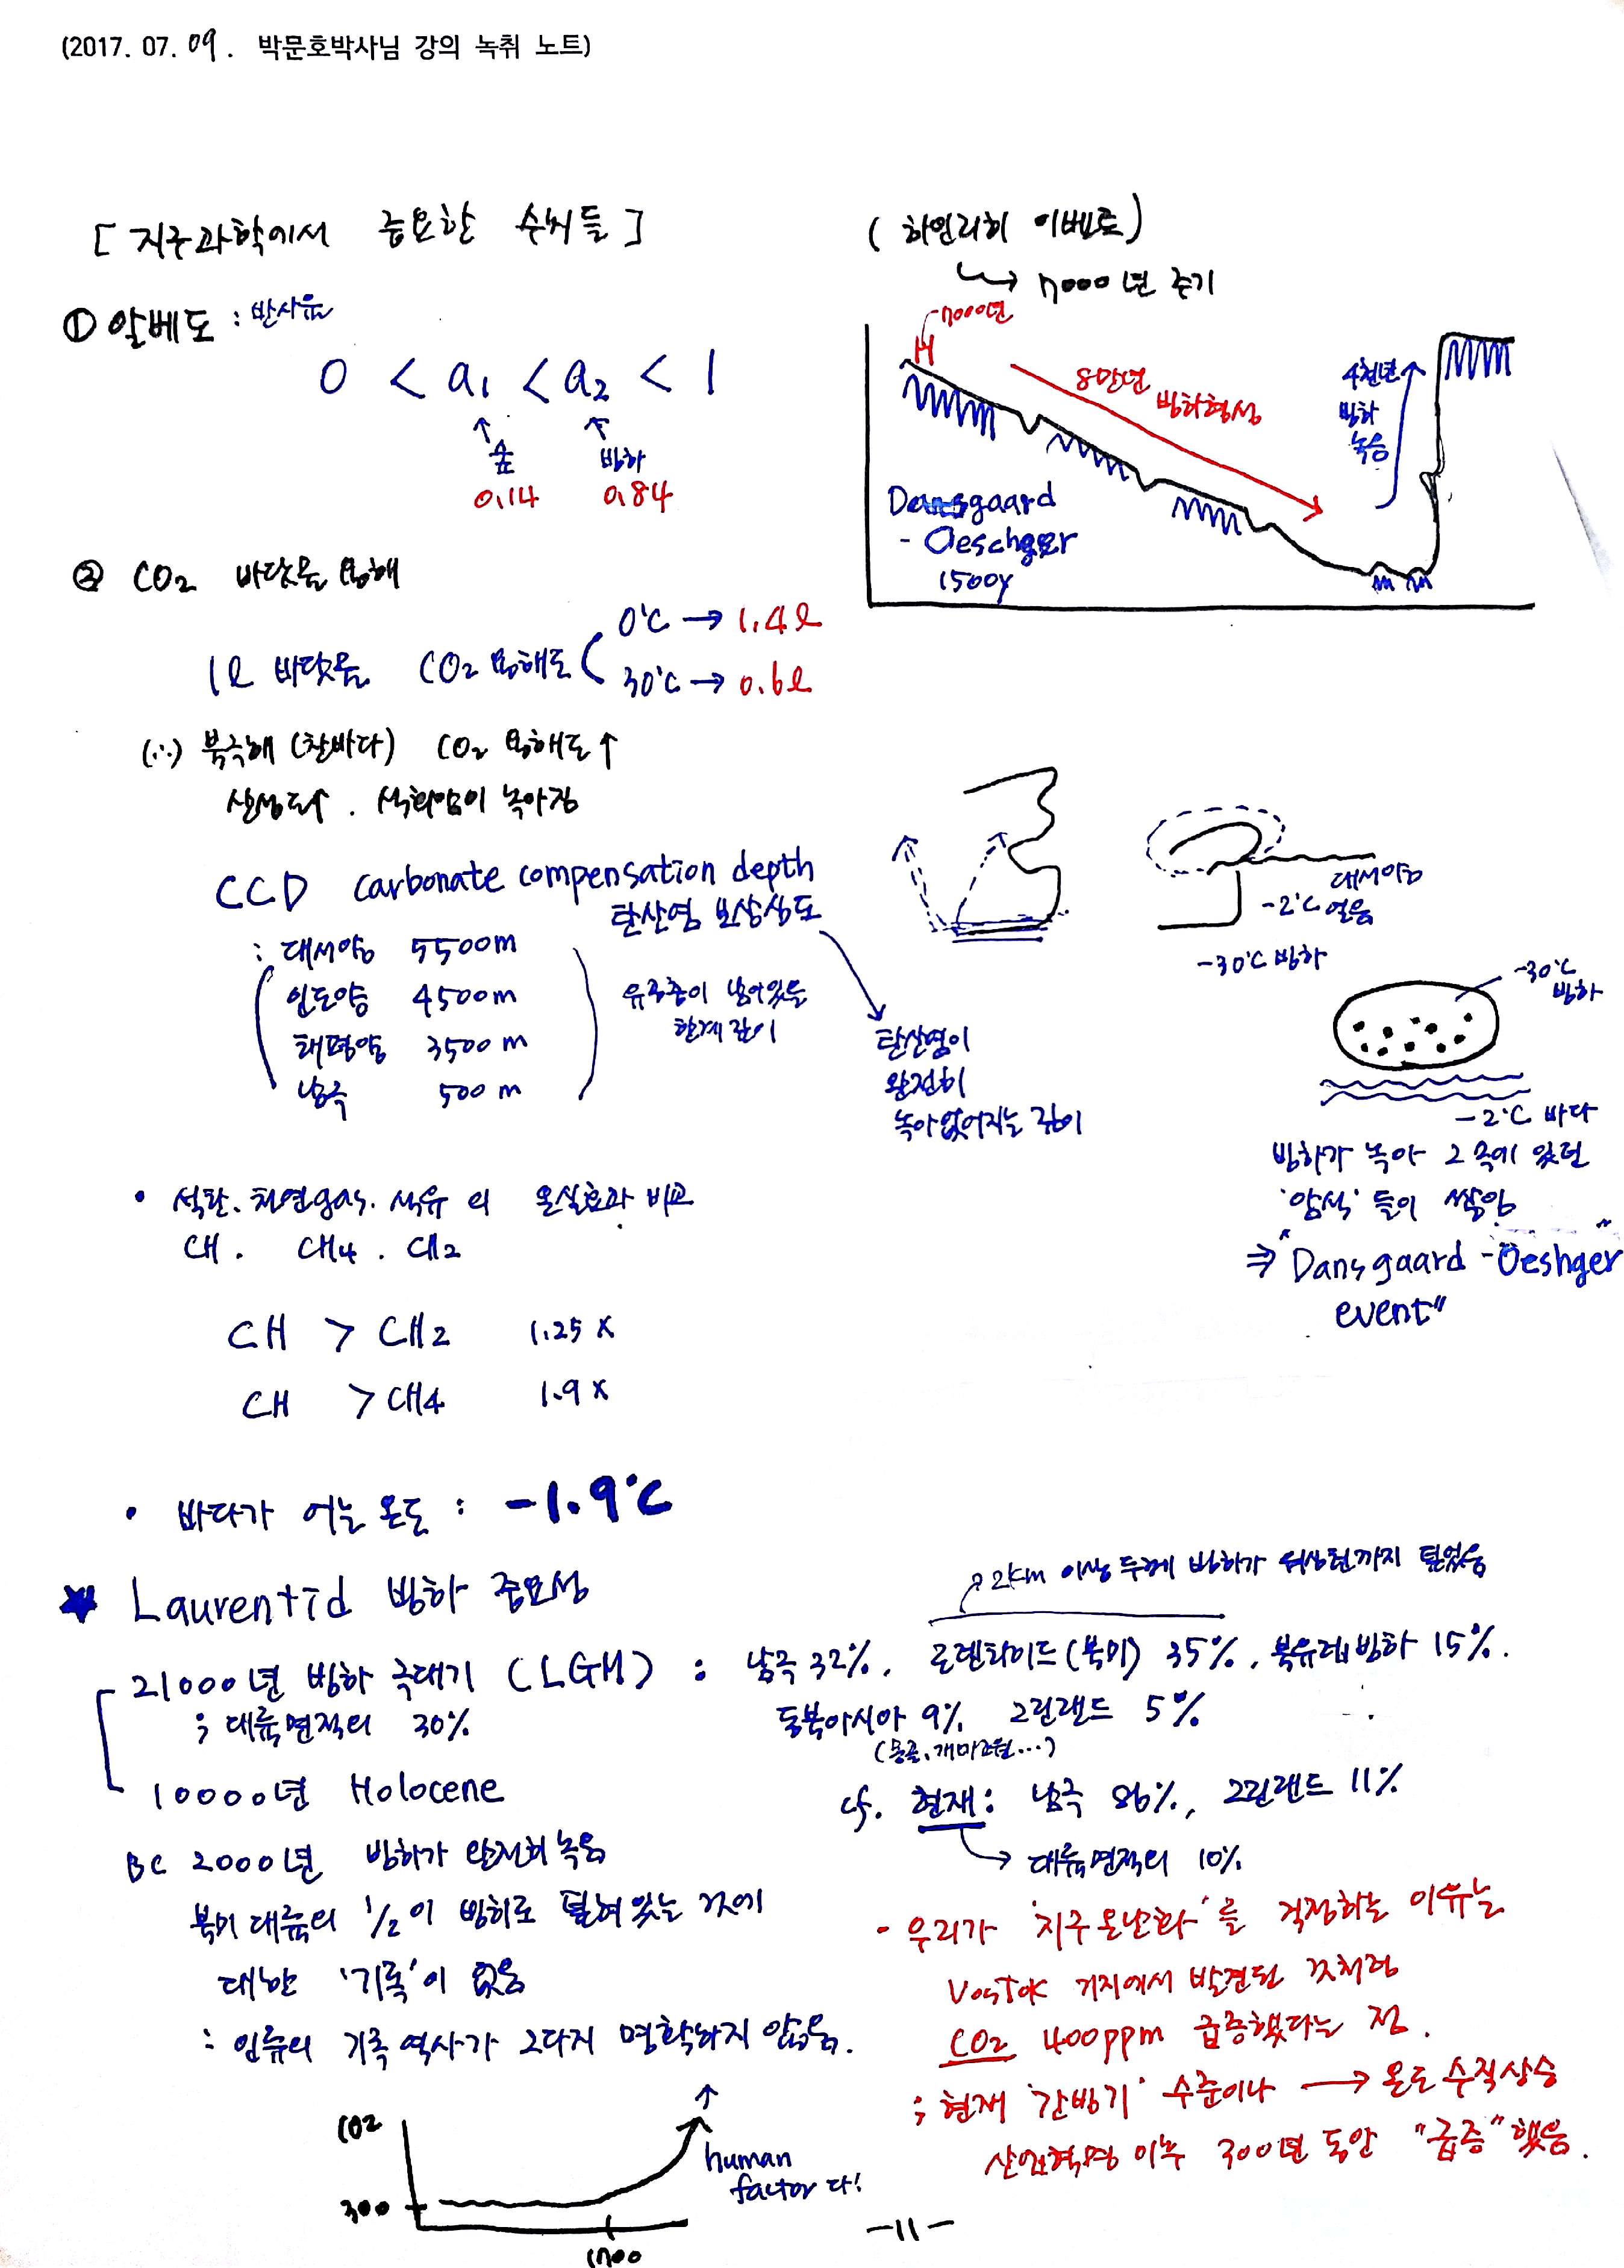 (2017. 07. 09. 박문호박사님 강의 녹취 노트)
[ 지구과학에서 중요한 수치들 ]
① 알베도 : 반사율
0 < a1 < a2 < 1
↑ ↑
숲 빙하
0.14 0.84
② CO2 바닷물 용해
1ℓ 바닷물 CO2 용해도
0℃ → 1.4ℓ
30℃ → 0.6ℓ
(∴) 북극해 (찬바다) CO2 용해도↑
산성도↑. 석회암이 녹아짐
CCD carbonate compensation depth
탄산염 보상심도
: 대서양 5500m
인도양 4500m
태평양 3500m
남극 500m
유공충이 남아있을
한계 깊이
탄산염이
완전히
녹아없어지는 깊이
• 석탄. 천연gas. 석유 의 온실효과 비교
CH. CH4. CH2
CH > CH2 1.25 x
CH > CH4 1.9 x
• 바다가 어는 온도 : -1.9℃
( 하인리히 이벤트 )
→ 7000년 주기
7000년
H
8만년
빙하형성
4천년
빙하
녹음
Dansgaard
- Oeschger
1500y
대서양
-2℃ 얼음
-30℃ 빙하
-30℃
빙하
-2℃ 바다
빙하가 녹아 그 속에 있던
'암석' 들이 쌓임
⇒ "Dansgaard - Oeshger
event"
★ Laurentid 빙하 중요성
2km 이상 두께 빙하가 위상턴까지 덮었음
21000년 빙하 극대기 (LGM) : 남극 32%, 로렌타이드(북미) 35%, 북유럽빙하 15%.
; 대륙면적의 30%
동북아시아 9% 그린랜드 5%
(몽골, 개마고원...)
10000년 Holocene
cf. 현재 : 남극 86%, 그린랜드 11%
→ 대륙면적의 10%
BC 2000년 빙하가 완전히 녹음
북미 대륙의 1/2이 빙하로 덮혀 있는 것에
대한 '기록'이 없음
: 인류의 기록 역사가 그다지 명확하지 않음.
- 우리가 '지구온난화'를 걱정하는 이유는
Vostok 기지에서 발견된 것처럼
CO2 400ppm 급증했다는 점.
; 현재 '간빙기' 수준이나 → 온도 수직상승
산업혁명 이후 300년 동안 "급증" 했음.
CO2
300
1700
human
factor 다!
-11-